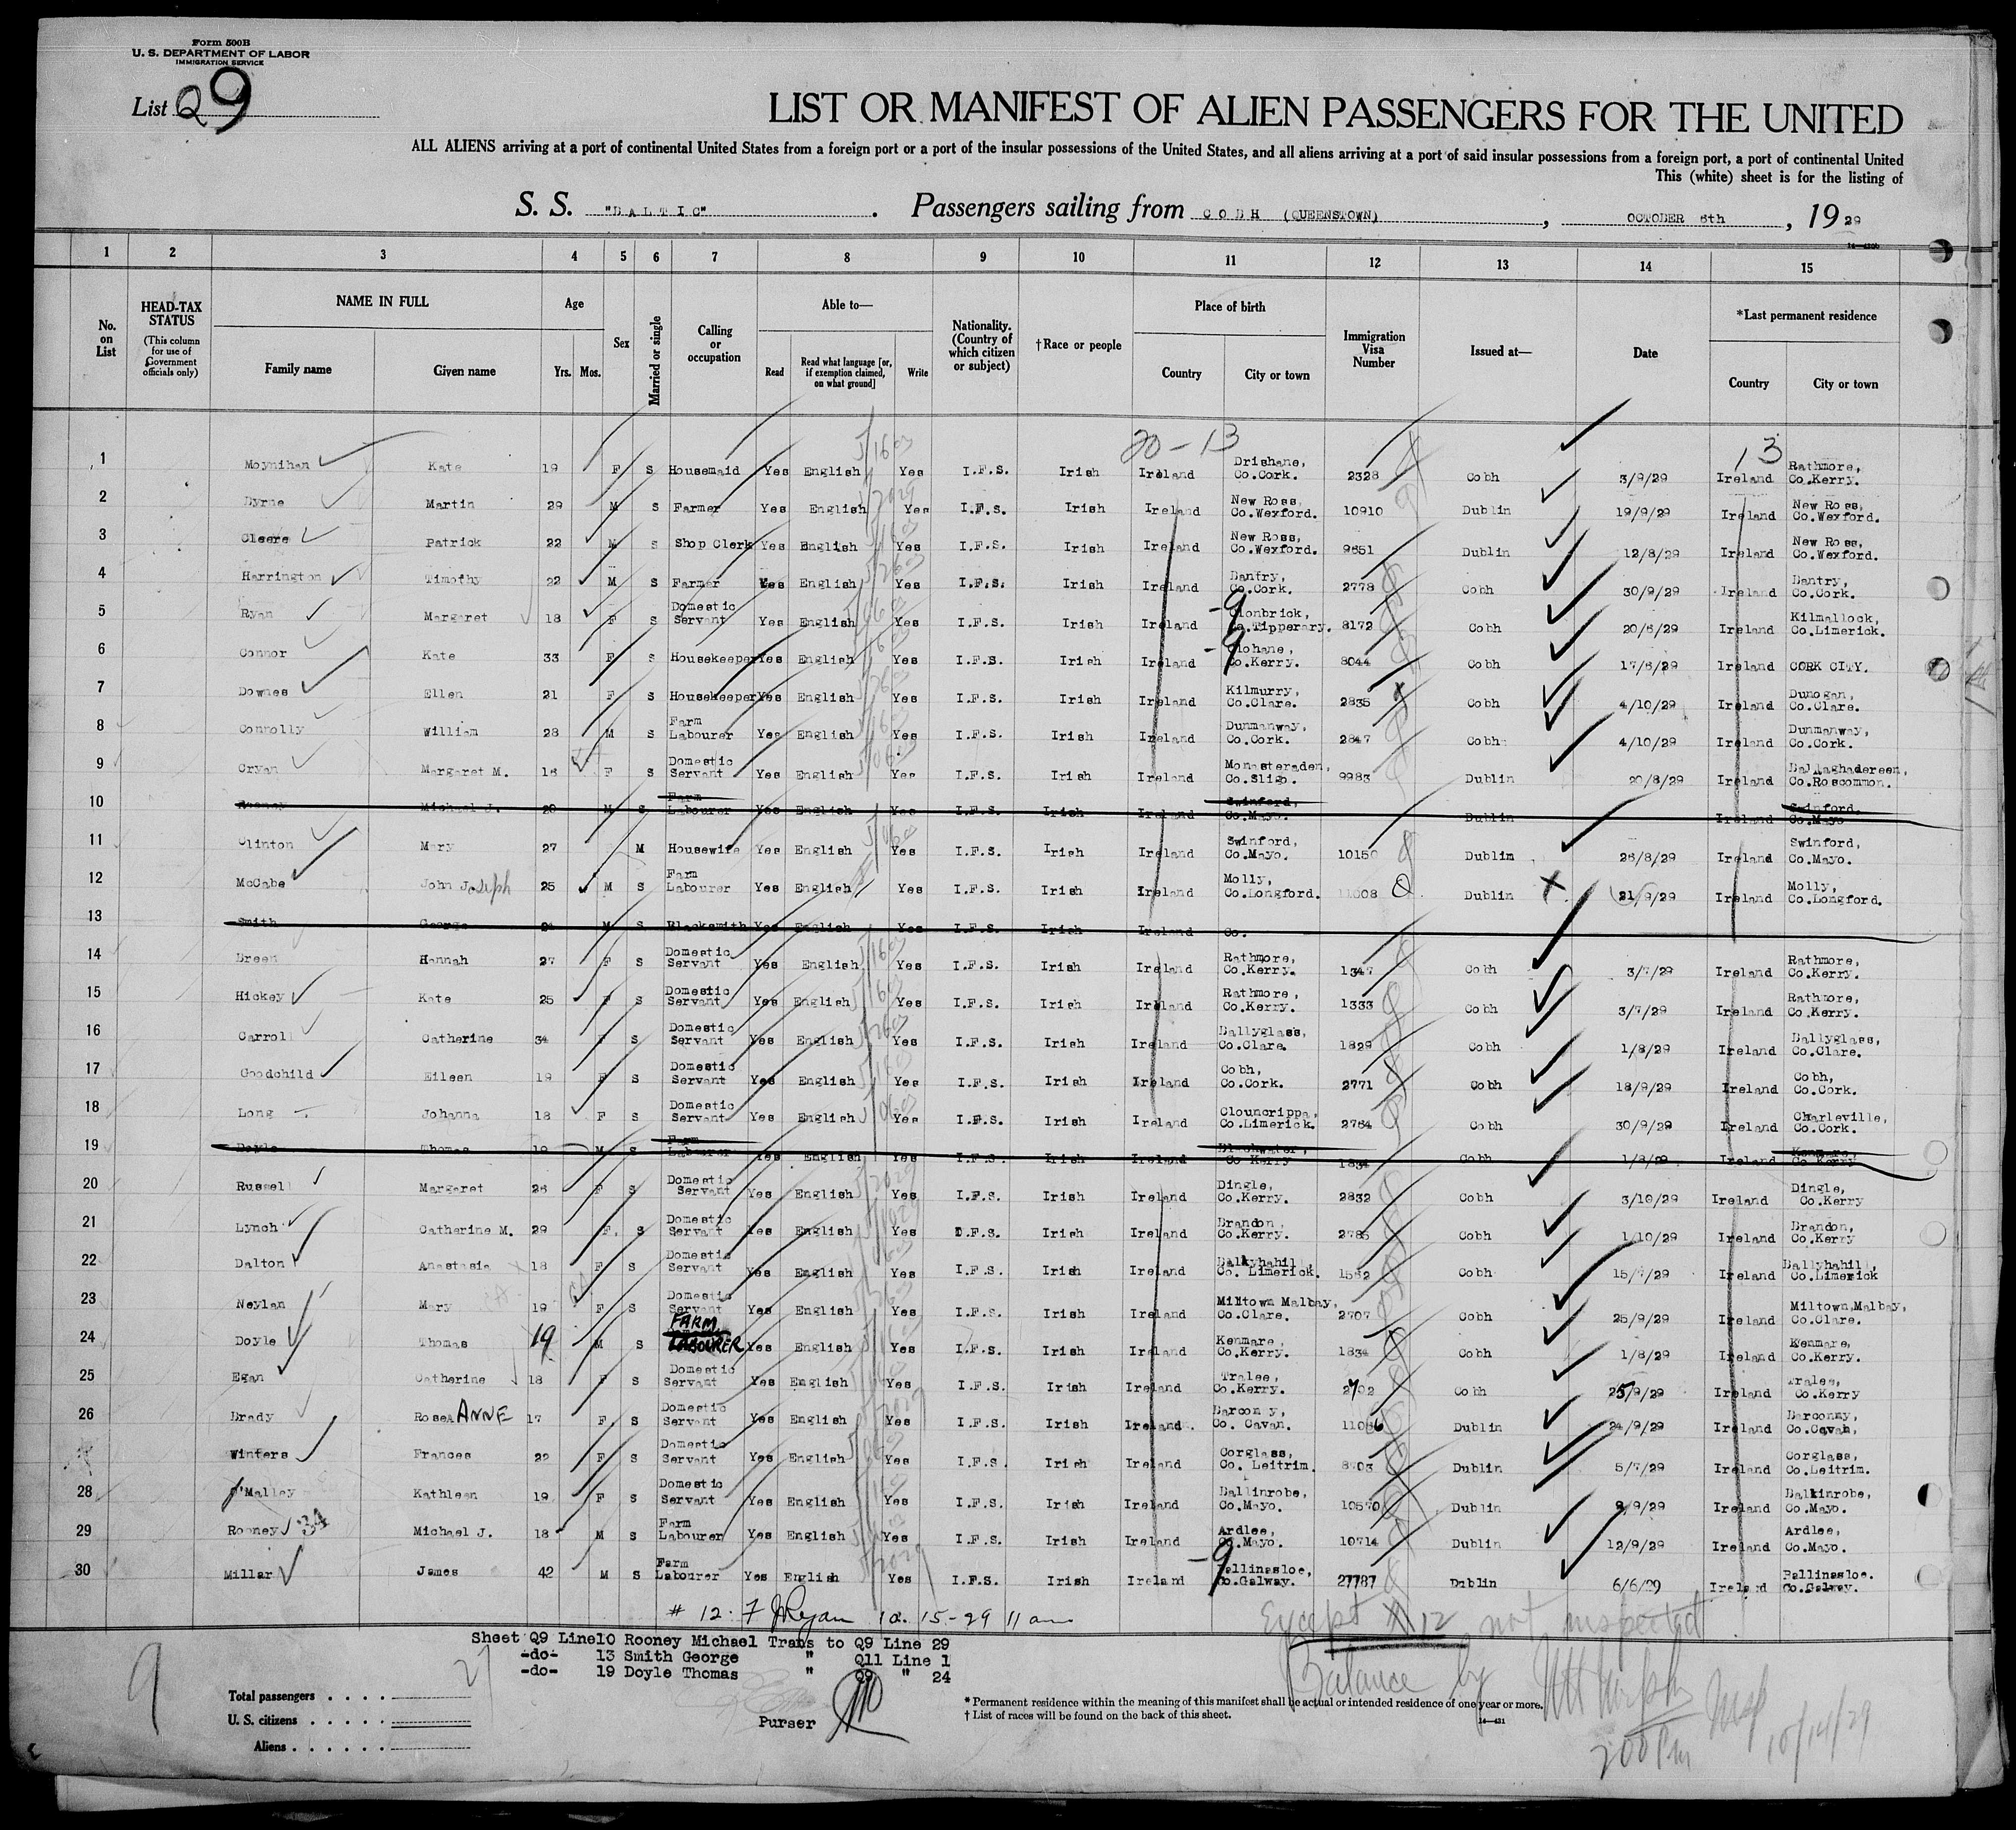 Form 500B
U. S. DEPARTMENT OF LABOR
IMMIGRATION SERVICE
List Q9
LIST OR MANIFEST OF ALIEN PASSENGERS FOR THE UNITED
ALL ALIENS arriving at a port of continental United States from a foreign port or a port of the insular possessions of the United States, and all aliens arriving at a port of said insular possessions from a foreign port, a port of continental United
This (white) sheet is for the listing of
S. S. "BALTIC". Passengers sailing from COBH (QUEENSTOWN), OCTOBER 6th, 1929
1 2 3 4 5 6 7 8 9 10 11 12 13 14 15
No. on List HEAD-TAX STATUS (This column for use of Government officials only) NAME IN FULL Family name Given name Age Yrs. Mos. Sex Married or single Calling or occupation Able to— Read Read what language [or, if exemption claimed, on what ground] Write Nationality. (Country of which citizen or subject) †Race or people Place of birth Country City or town Immigration Visa Number Issued at— Date *Last permanent residence Country City or town
20-13 13
1 Moynihan Kate 19 F S Housemaid Yes English Yes I.F.S. Irish Ireland Drishane, Co.Cork. 2328 Cobh 3/9/29 Ireland Rathmore, Co.Kerry.
2 Byrne Martin 29 M S Farmer Yes English Yes I.F.S. Irish Ireland New Ross, Co.Wexford. 10910 Dublin 19/9/29 Ireland New Ross, Co.Wexford.
3 Cleere Patrick 22 M S Shop Clerk Yes English Yes I.F.S. Irish Ireland New Ross, Co.Wexford. 9651 Dublin 12/8/29 Ireland New Ross, Co.Wexford.
4 Harrington Timothy 22 M S Farmer Yes English Yes I.F.S. Irish Ireland Bantry, Co.Cork. 2778 Cobh 30/9/29 Ireland Bantry, Co.Cork.
5 Ryan Margaret 18 F S Domestic Servant Yes English Yes I.F.S. Irish Ireland -9 Clonbrick, Co.Tipperary. 8172 Cobh 20/6/29 Ireland Kilmallock, Co.Limerick.
6 Connor Kate 33 F S Housekeeper Yes English Yes I.F.S. Irish Ireland -9 Clohane, Co.Kerry. 8044 Cobh 17/6/29 Ireland CORK CITY.
7 Downes Ellen 21 F S Housekeeper Yes English Yes I.F.S. Irish Ireland Kilmurry, Co.Clare. 2835 Cobh 4/10/29 Ireland Dunogan, Co.Clare.
8 Connolly William 28 M S Farm Labourer Yes English Yes I.F.S. Irish Ireland Dunmanway, Co.Cork. 2847 Cobh 4/10/29 Ireland Dunmanway, Co.Cork.
9 Cryan Margaret M. 16 F S Domestic Servant Yes English Yes I.F.S. Irish Ireland Monasteraden, Co.Sligo. 9983 Dublin 20/8/29 Ireland Ballaghadereen, Co.Roscommon.
10 Rooney Michael J. M S Farm Labourer Yes English Yes I.F.S. Irish Ireland Swinford, Co.Mayo. Dublin Ireland Swinford, Co.Mayo
11 Clinton Mary 27 M Housewife Yes English Yes I.F.S. Irish Ireland Swinford, Co.Mayo. 10150 Dublin 26/8/29 Ireland Swinford, Co.Mayo.
12 McCabe John Joseph 25 M S Farm Labourer Yes English Yes I.F.S. Irish Ireland Molly, Co.Longford. 11008 Dublin 21/9/29 Ireland Molly, Co.Longford.
13 Smith George 21 M S Blacksmith Yes English Yes I.F.S. Irish Ireland Co.
14 Breen Hannah 27 F S Domestic Servant Yes English Yes I.F.S. Irish Ireland Rathmore, Co.Kerry. 1347 Cobh 3/7/29 Ireland Rathmore, Co.Kerry.
15 Hickey Kate 25 F S Domestic Servant Yes English Yes I.F.S. Irish Ireland Rathmore, Co.Kerry. 1333 Cobh 3/7/29 Ireland Rathmore, Co.Kerry.
16 Carroll Catherine 34 F S Domestic Servant Yes English Yes I.F.S. Irish Ireland Ballyglass, Co.Clare. 1829 Cobh 1/8/29 Ireland Ballyglass, Co.Clare.
17 Goodchild Eileen 19 F S Domestic Servant Yes English Yes I.F.S. Irish Ireland Cobh, Co.Cork. 2771 Cobh 18/9/29 Ireland Cobh, Co.Cork.
18 Long Johanna 18 F S Domestic Servant Yes English Yes I.F.S. Irish Ireland Clouncrippa, Co.Limerick. 2764 Cobh 30/9/29 Ireland Charleville, Co.Cork.
19 Doyle Thomas 19 M S Farm Labourer Yes English Yes I.F.S. Irish Ireland Blackwater, Co Kerry 1834 Cobh 1/8/29 Ireland Kenmare, Co.Kerry
20 Russell Margaret 26 F S Domestic Servant Yes English Yes I.F.S. Irish Ireland Dingle, Co.Kerry. 2832 Cobh 3/10/29 Ireland Dingle, Co.Kerry
21 Lynch Catherine M. 29 F. S Domestic Servant Yes English Yes I.F.S. Irish Ireland Brandon, Co.Kerry. 2785 Cobh 1/10/29 Ireland Brandon, Co.Kerry
22 Dalton Anastasia 18 F S Domestic Servant Yes English Yes I.F.S. Irish Ireland Ballyhahill, Co. Limerick. 1552 Cobh 15/7/29 Ireland Ballyhahill, Co.Limerick
23 Neylan Mary 19 F S Domestic Servant Yes English Yes I.F.S. Irish Ireland Miltown Malbay, Co.Clare. 2707 Cobh 25/9/29 Ireland Miltown,Malbay, Co.Clare.
24 Doyle Thomas 19 M S FARM LABOURER Yes English Yes I.F.S. Irish Ireland Kenmare, Co.Kerry. 1834 Cobh 1/8/29 Ireland Kenmare, Co.Kerry.
25 Egan Catherine 18 F S Domestic Servant Yes English Yes I.F.S. Irish Ireland Tralee, Co.Kerry. 2702 Cobh 25/9/29 Ireland Tralee, Co.Kerry
26 Brady Rose ANNE 17 F. S Domestic Servant Yes English Yes I.F.S. Irish Ireland. Barconny, Co. Cavan. 11066 Dublin 24/9/29 Ireland Barconny, Co.Cavan.
Winters Frances 22 F S Domestic Servant Yes English Yes I.F.S. Irish Ireland Corglass, Co. Leitrim. 8703 Dublin 5/7/29 Ireland Corglass, Co.Leitrim.
28 O'Malley Kathleen 19 F S Domestic Servant Yes English Yes I.F.S. Irish Ireland Ballinrobe, Co.Mayo. 10570 Dublin 9/9/29 Ireland Ballinrobe, Co.Mayo.
29 Rooney 34 Michael J. 18 M S Farm Labourer Yes English Yes I.F.S. Irish Ireland Ardlee, Co.Mayo. 10714 Dublin 12/9/29 Ireland Ardlee, Co.Mayo.
30 Millar James 42 M S Farm Labourer Yes English Yes I.F.S. Irish Ireland -9 Ballinasloe, Co.Galway. 27787 Dublin 6/6/29 Ireland Ballinasloe. Co.Galway.
# 12. F J Ryan 10. 15-29 11 am
Except # 12 not inspected
Sheet Q9 Line10 Rooney Michael Trans to Q9 Line 29
-do- 13 Smith George " Q11 Line 1
-do- 19 Doyle Thomas " Q9 " 24
Balance by
9
27
Total passengers
U. S. citizens
Aliens
Purser
* Permanent residence within the meaning of this manifest shall be actual or intended residence of one year or more.
† List of races will be found on the back of this sheet.
14-431
200 Pm
10/14/29